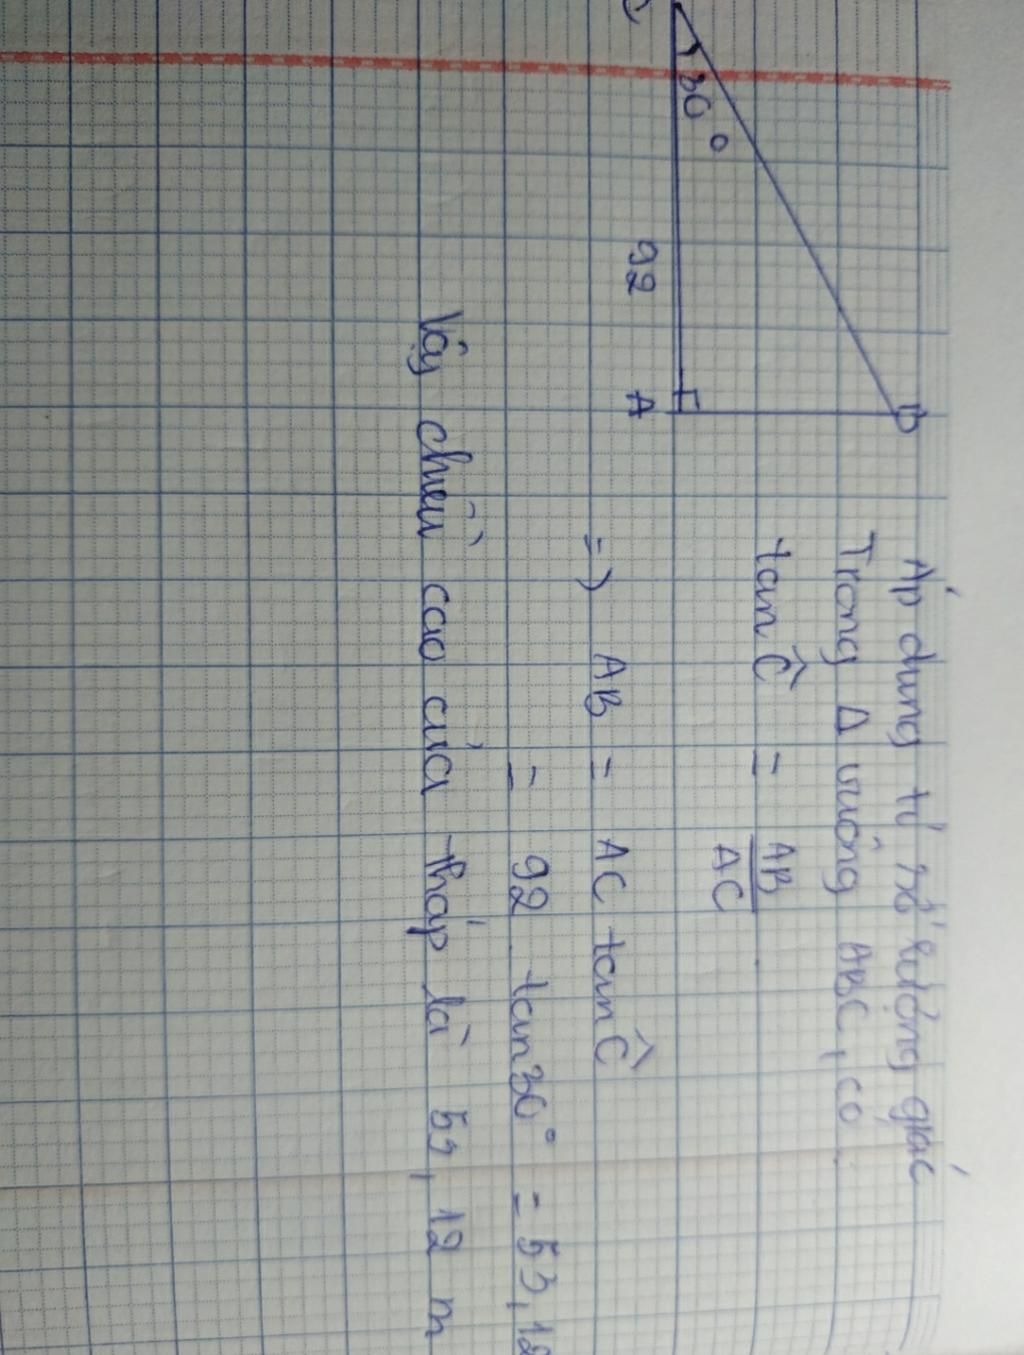 Áp dụng tỉ số lượng giác
Trong Δ vuông ABC, có
tan Ĉ = AB/AC
=> AB = AC tan Ĉ
= 92 tan30° = 53,12
Vậy chiều cao của tháp là 53,12 m
B
C 30°
92
A